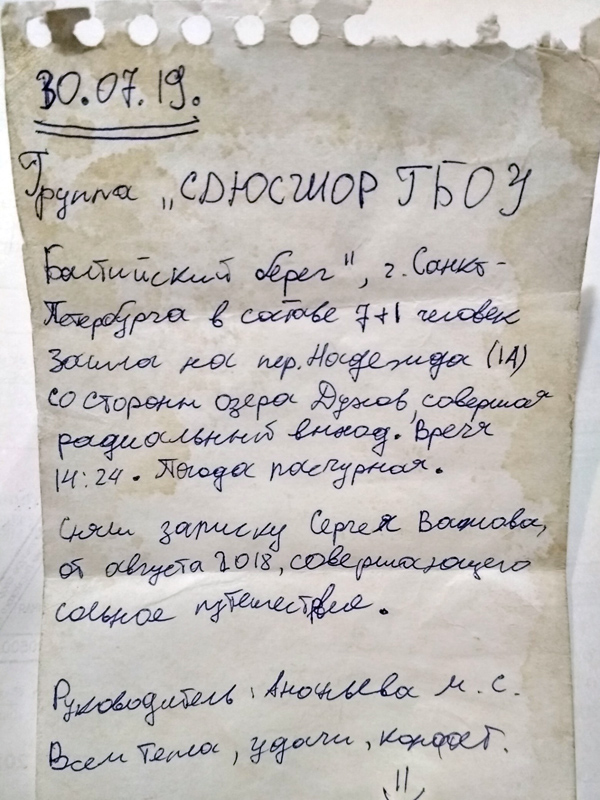 30.07.19.
Группа „СДЮСШОР ГБОУ
Балтийский берег", г. Санкт-
Петербурга в составе 7+1 человек
зашла на пер. Надежда (1А)
со стороны озера Духов, совершая
радиальный выход. Время
14:24. Погода пасмурная.
Сняли записку Сергея
от августа 2018, совершающего
сольное путешествие.
Руководитель: Ананьева М. С.
Всем тепла, удачи, конфет.